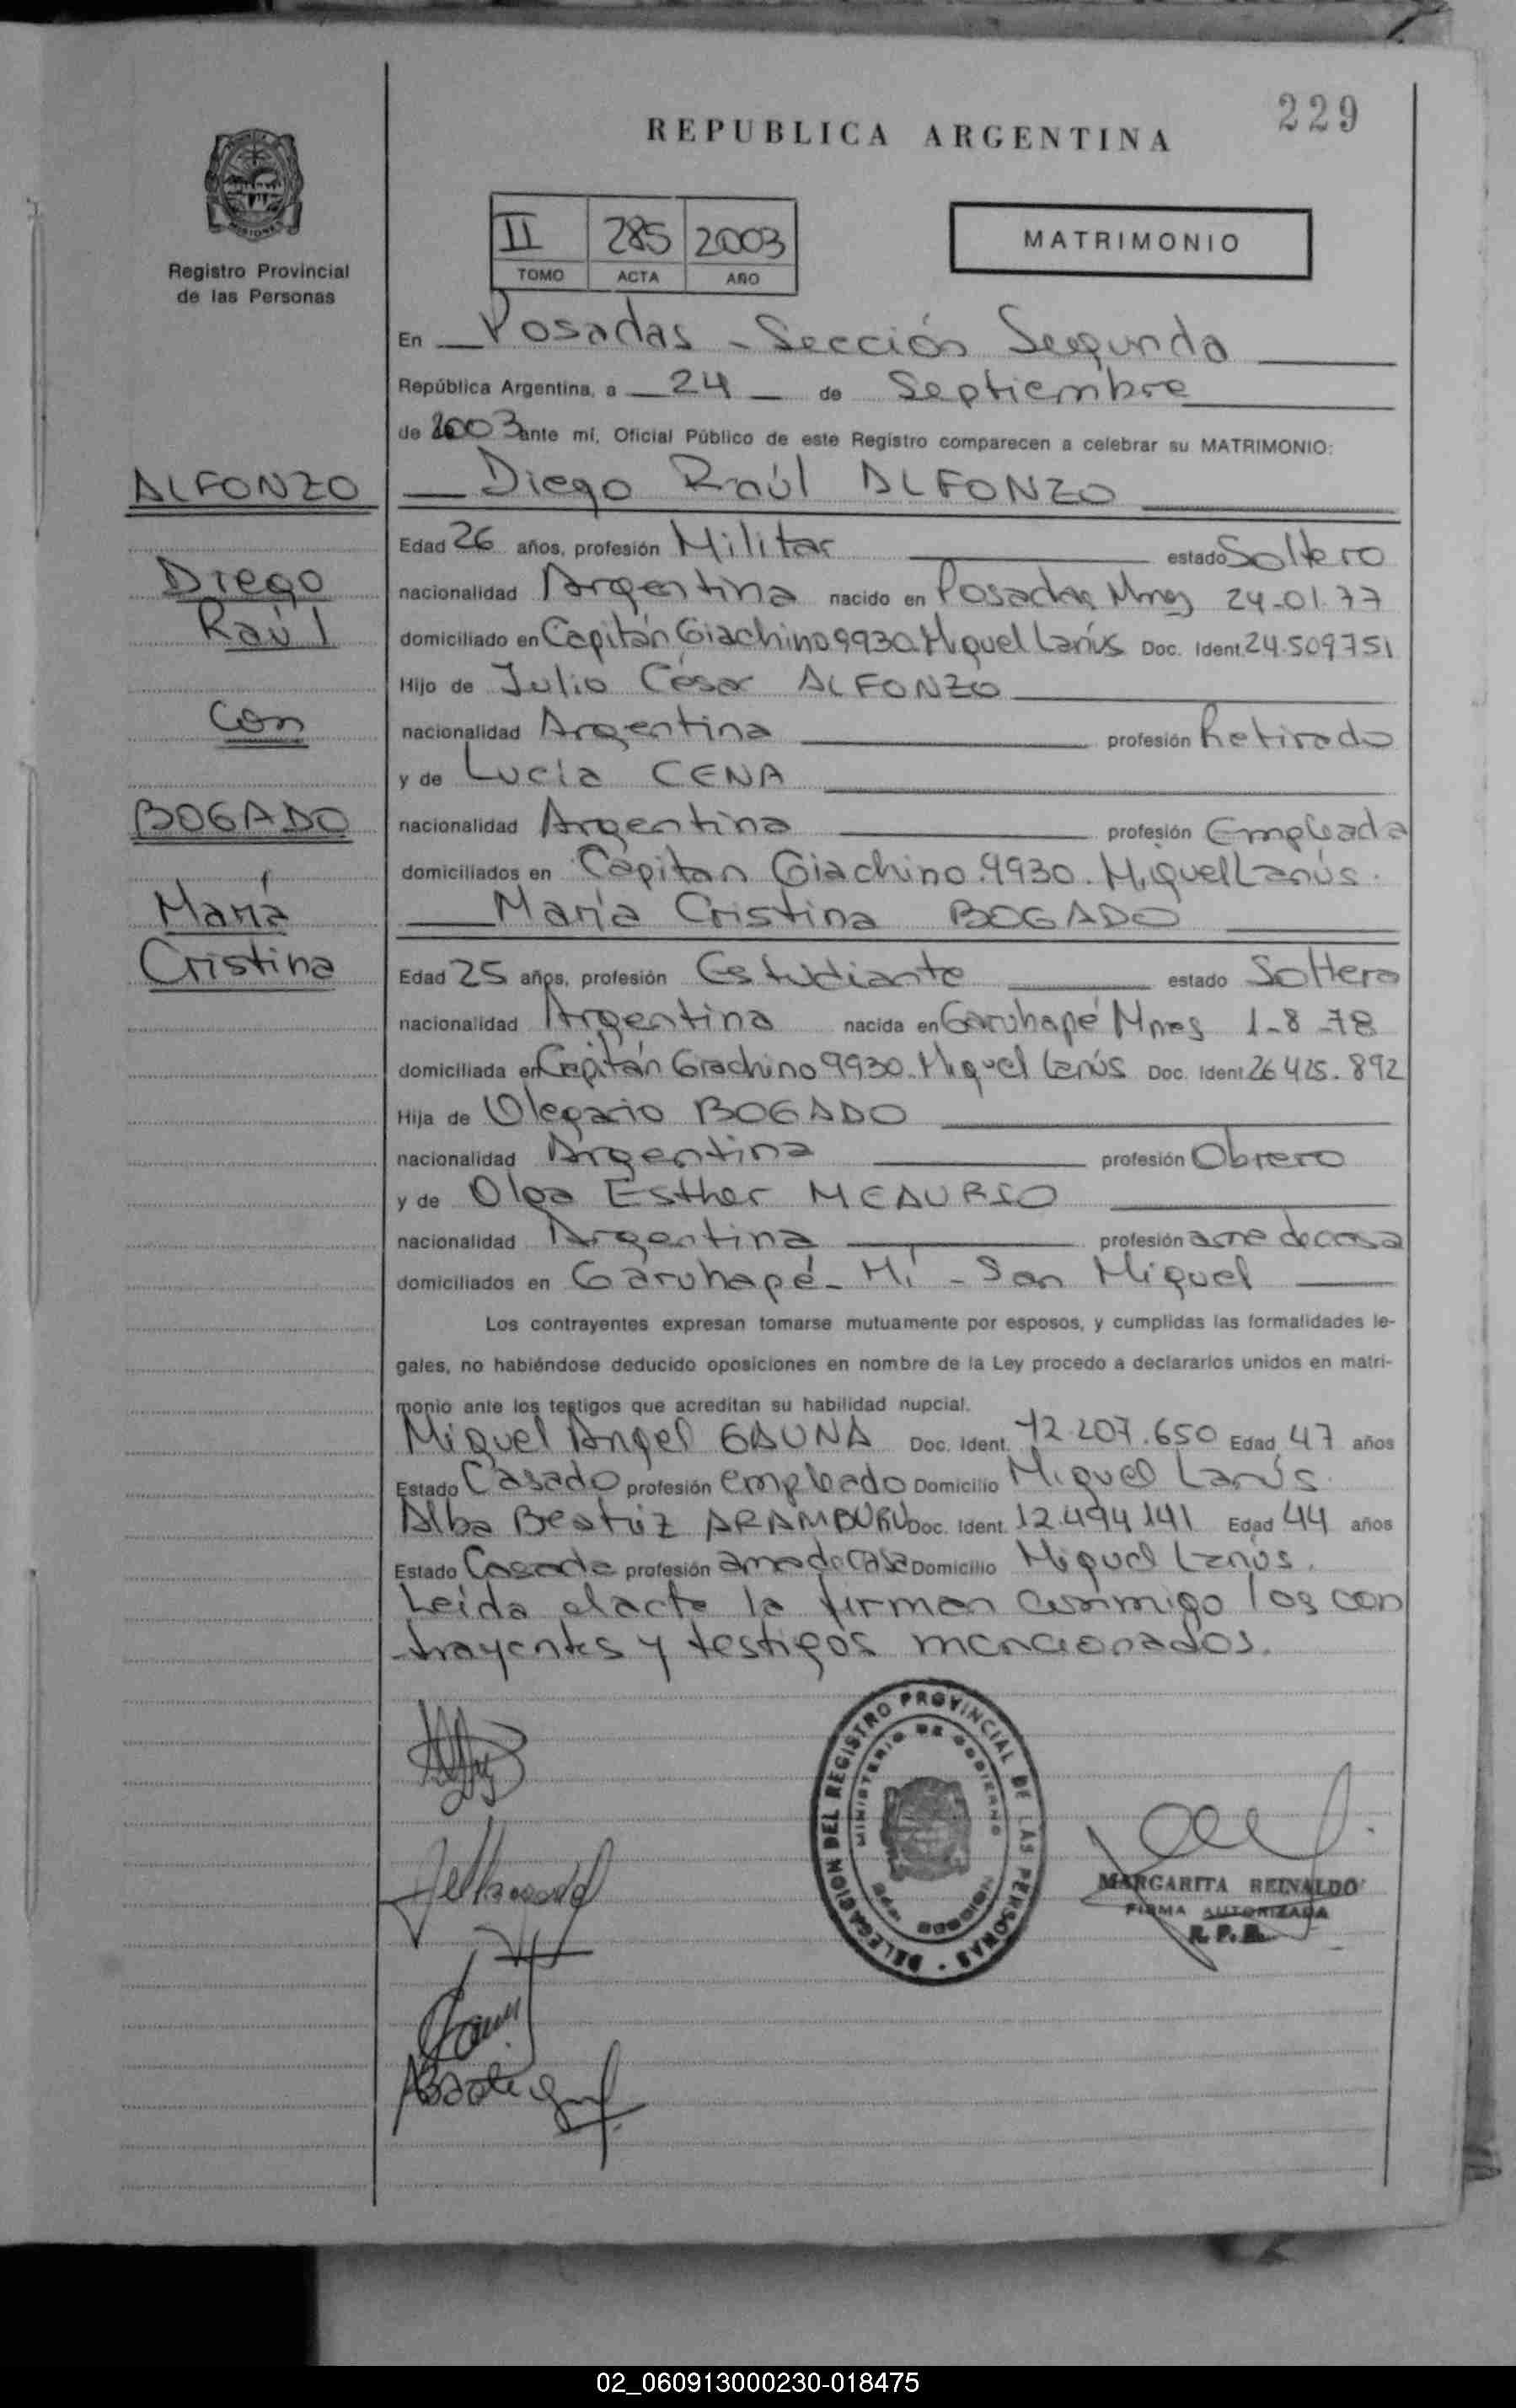 229
REPUBLICA ARGENTINA
Registro Provincial
de las Personas
II 285 2003
TOMO ACTA AÑO
MATRIMONIO
En Posadas - Sección Segunda
República Argentina, a 24 de Septiembre
de 2003 ante mí, Oficial Público de este Registro comparecen a celebrar su MATRIMONIO:
ALFONZO
Diego
Raúl
con
BOGADO
María
Cristina
Diego Raúl ALFONZO
Edad 26 años, profesión Militar estado Soltero
nacionalidad Argentina nacido en Posadas Mnes 24-01-77
domiciliado en Capitán Giachino 9930. Miguel Lanús Doc. Ident. 24.509751
Hijo de Julio César ALFONZO
nacionalidad Argentina profesión Retirado
y de Lucía CENA
nacionalidad Argentina profesión Empleada
domiciliados en Capitan Giachino. 9930. Miguel Lanús.
María Cristina BOGADO
Edad 25 años, profesión Estudiante estado Soltera
nacionalidad Argentina nacida en Garuhapé Mnes 1-8-78
domiciliada en Capitán Giachino 9930. Miguel Lanús Doc. Ident. 26 425.892
Hija de Olegario BOGADO
nacionalidad Argentina profesión Obrero
y de Olga Esther MEAURIO
nacionalidad Argentina profesión ama de casa
domiciliados en Garuhapé - Mí - San Miguel
Los contrayentes expresan tomarse mutuamente por esposos, y cumplidas las formalidades le-
gales, no habiéndose deducido oposiciones en nombre de la Ley procedo a declararlos unidos en matri-
monio ante los testigos que acreditan su habilidad nupcial.
Miguel Angel GAUNA Doc. Ident. 12.207.650 Edad 47 años
Estado Casado profesión empleado Domicilio Miguel Lanús.
Alba Beatriz ARAMBURU Doc. Ident. 12.494.141 Edad 44 años
Estado Casada profesión ama de casa Domicilio Miguel Lanús.
Leída el acta la firman conmigo los con
trayentes y testigos mencionados.
DELEGACION DEL REGISTRO PROVINCIAL DE LAS PERSONAS
MINISTERIO DE GOBIERNO
MARGARITA REINALDO
FIRMA AUTORIZADA
R. P. P.
02_060913000230-018475